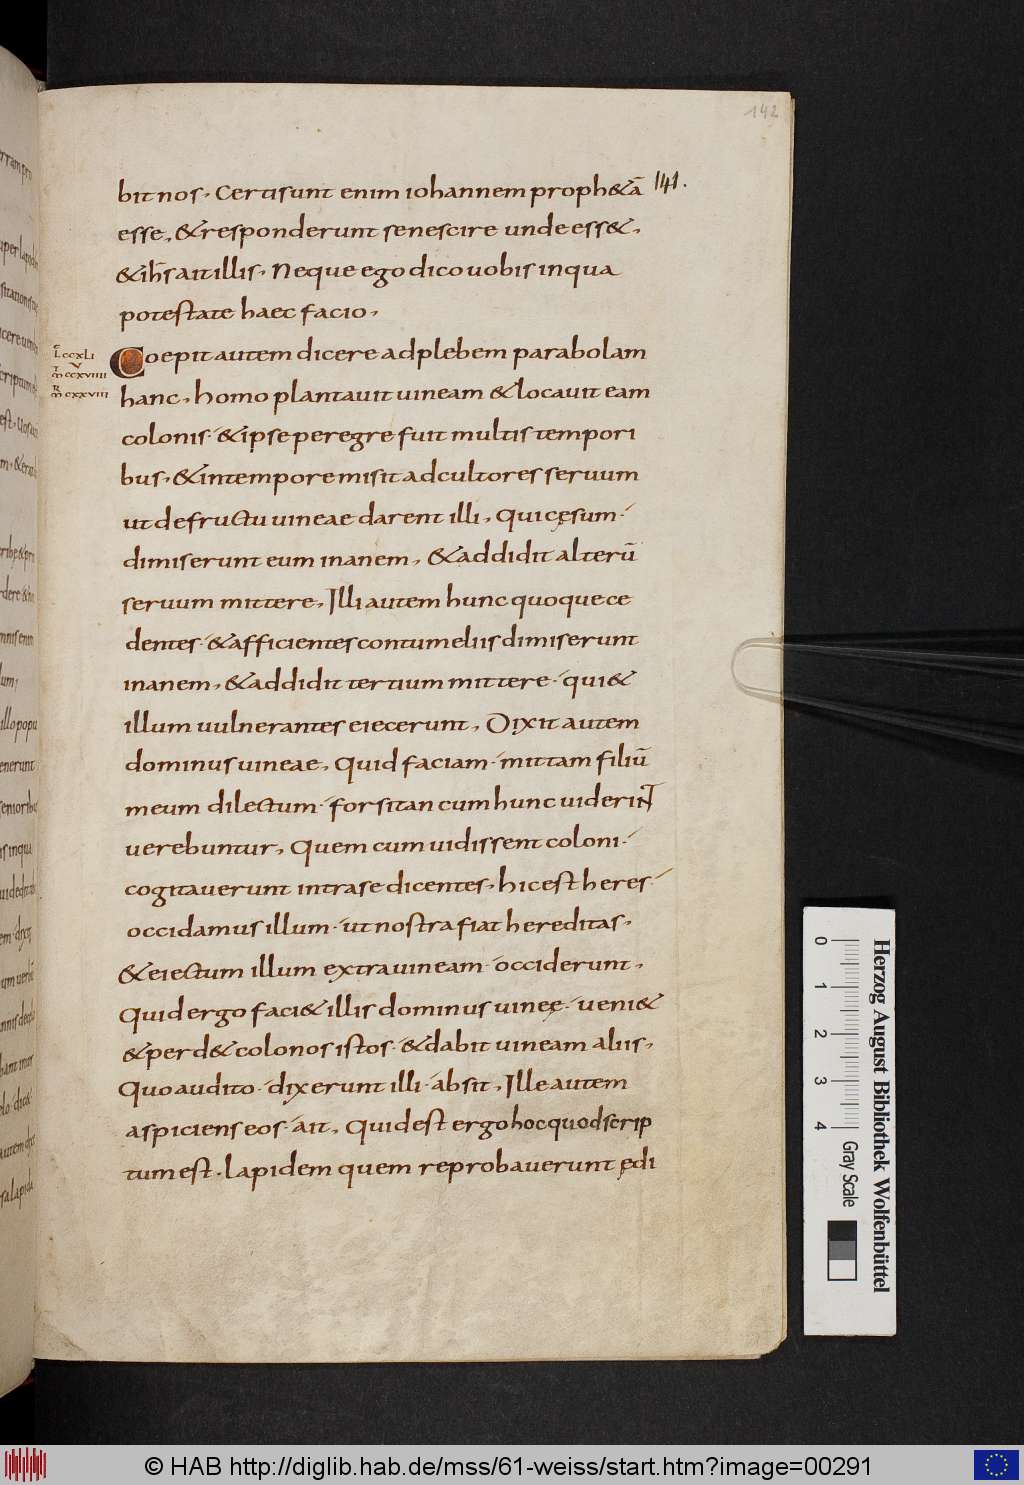 142
141.
bit nos. Certi sunt enim iohannem proph&ā
esse. &responderunt se nescire unde ess&.
&ih̄s ait illis. Neque ego dico uobis in qua
potestate haec facio.
Coepit autem dicere ad plebem parabolam
hanc. homo plantauit uineam &locauit eam
colonis· &ipse peregre fuit multis tempori
bus. &intempore misit ad cultores seruum
ut de fructu uineae darent illi. Qui cęsum·
dimiserunt eum inanem. &addidit alterū
seruum mittere. Illi autem hunc quoque ce
dentes· &afficientes contumeliis dimiserunt
inanem. &addidit tertium mittere· qui &
illum uulnerantes eiecerunt. Dixit autem
dominus uineae. Quid faciam· mittam filiū
meum dilectum· forsitan cum hunc uiderint
uerebuntur. Quem cum uidissent coloni·
cogitauerunt intra se dicentes. hic est heres·
occidamus illum· ut nostra fiat hereditas.
&eiectum illum extra uineam· occiderunt.
Quid ergo faci& illis dominus uineę· ueni&
&perd& colonos istos· &dabit uineam aliis.
Quo audito· dixerunt illi· absit. Ille autem
aspiciens eos· ait. Quid est ergo hoc quod scrip
tum est. Lapidem quem reprobauerunt ędi
L ccxli
m ccxviiii
m cxxviii
0 1 2 3 4
Gray Scale
Herzog August Bibliothek Wolfenbüttel
© HAB http://diglib.hab.de/mss/61-weiss/start.htm?image=00291